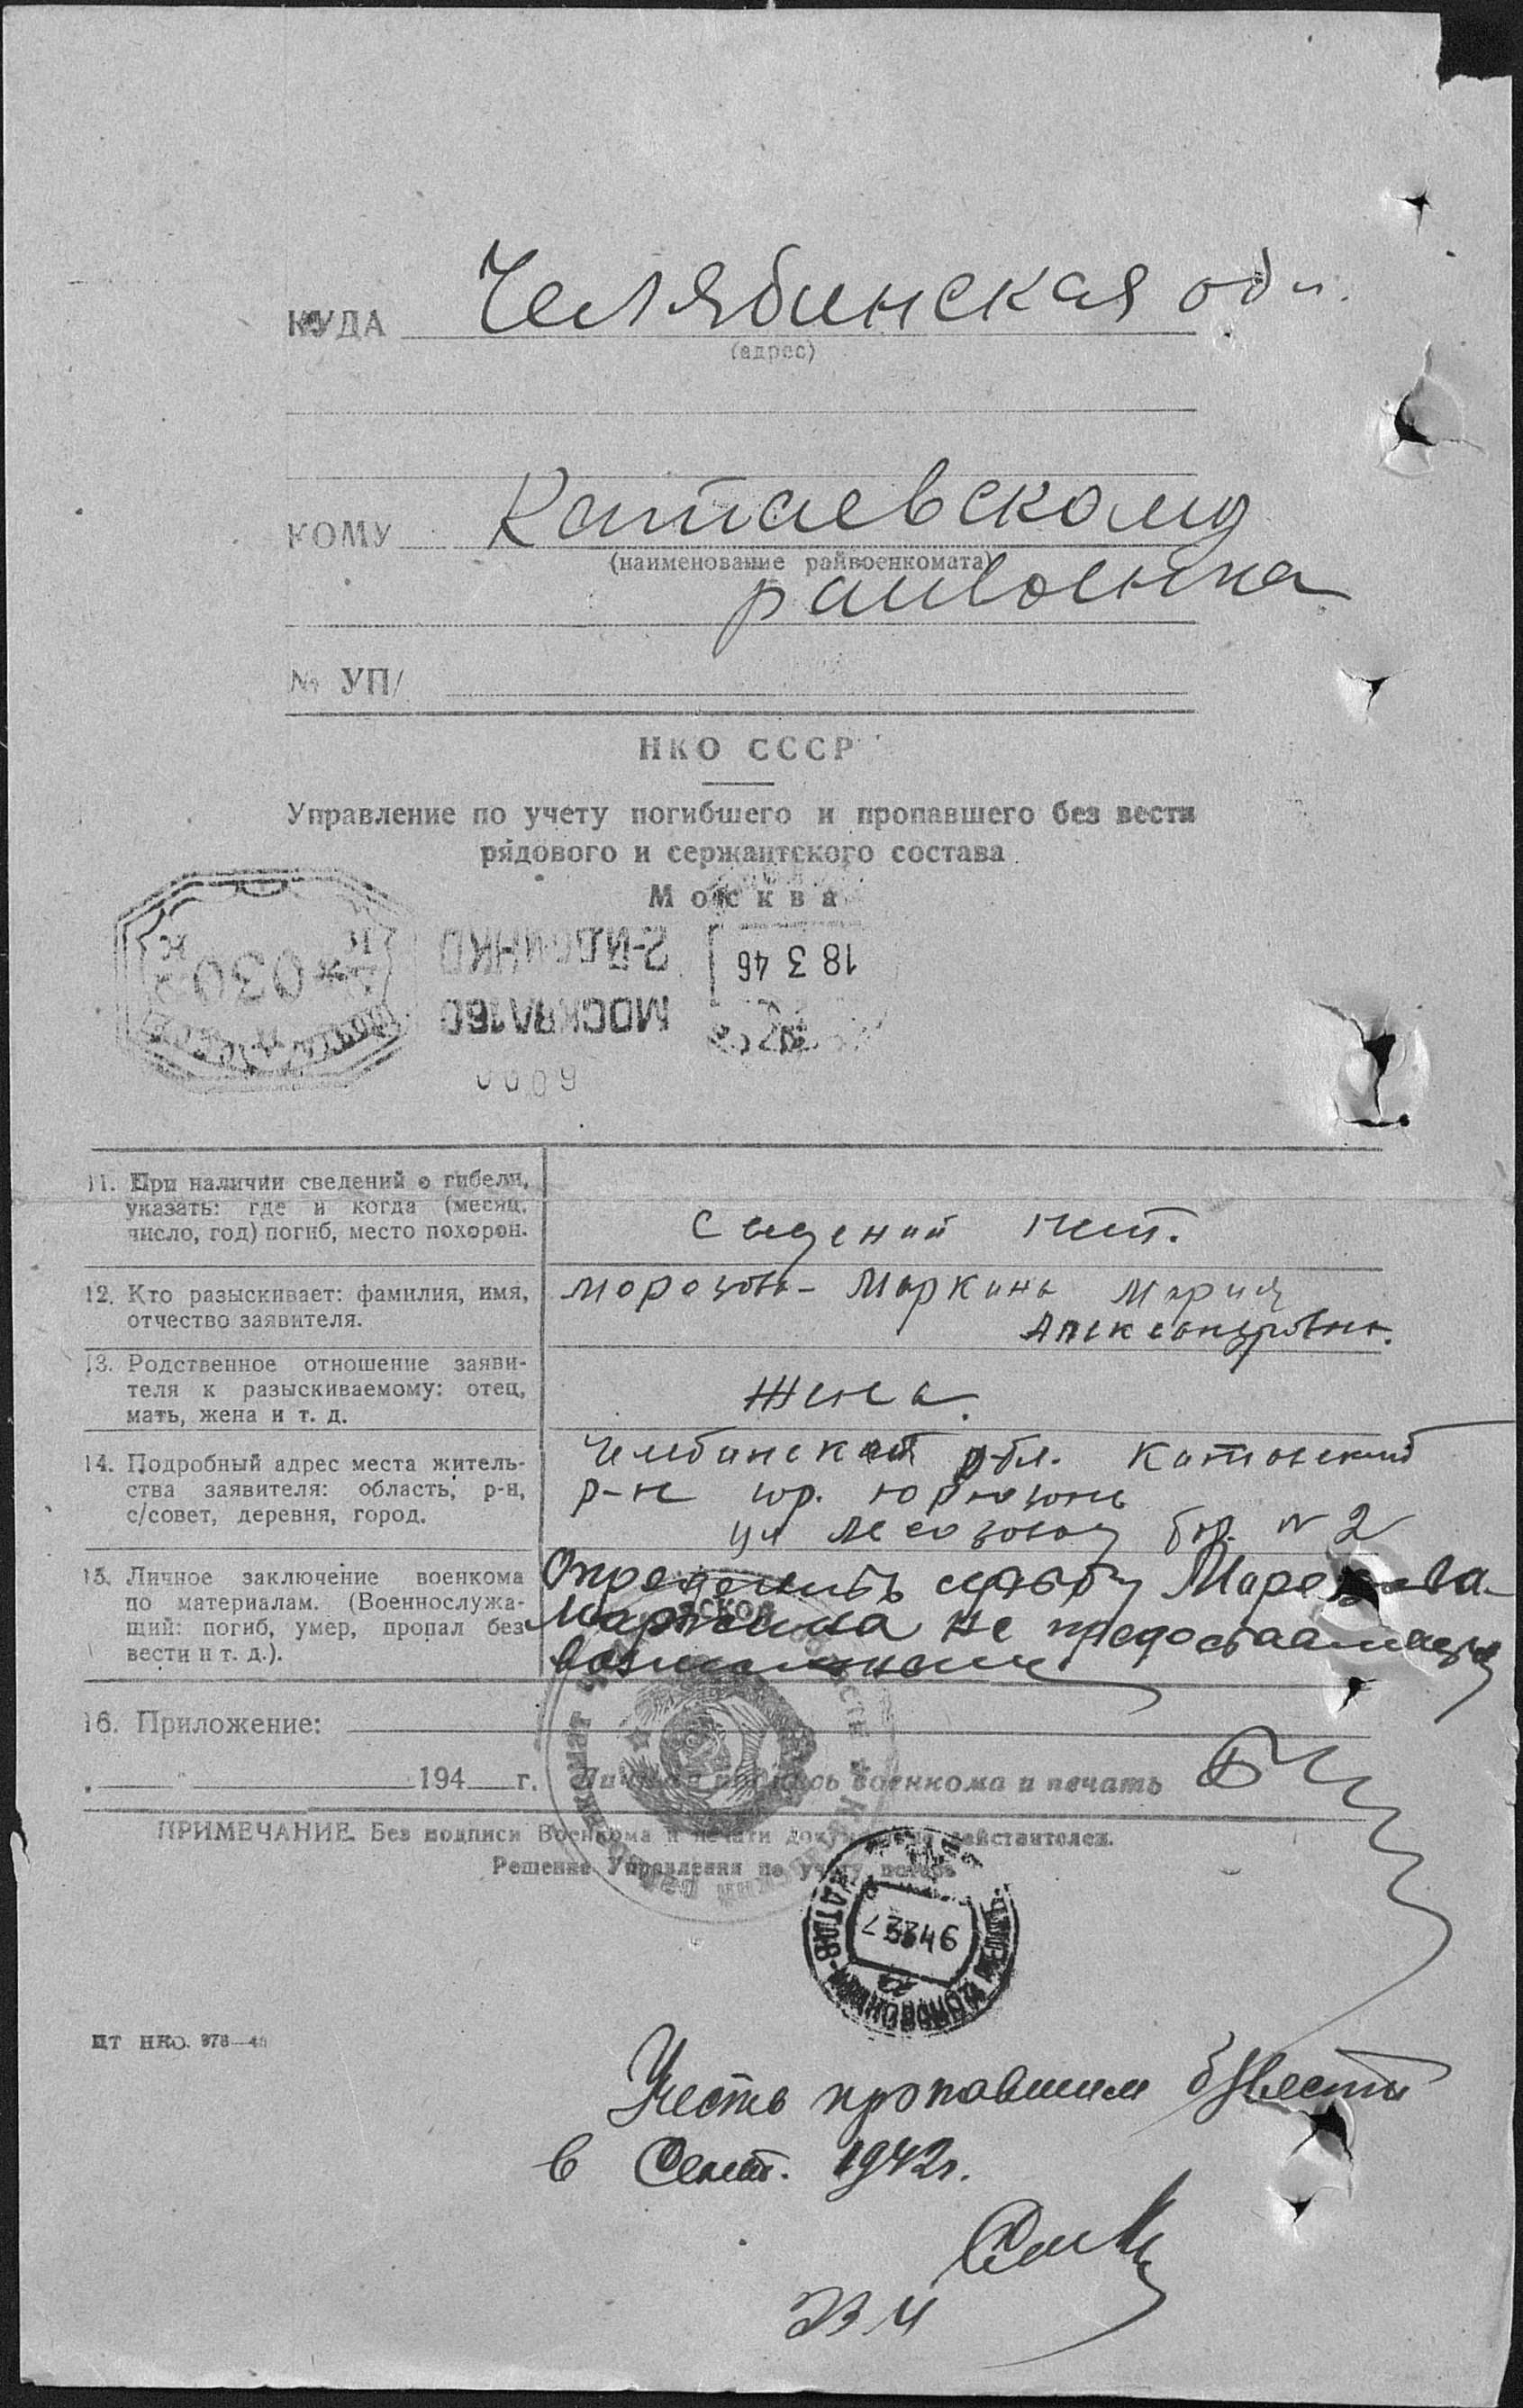 КУДА Челябинская обл.
(адрес)
КОМУ Катаевскому
(наименование райвоенкомата)
райвоенка
№ УП/
НКО СССР
Управление по учету погибшего и пропавшего без вести
рядового и сержантского состава
Москва
18 3 46
2-Й ДОМ НКО
МОСКВА 160
030
0009
11. При наличии сведений о гибели,
указать: где и когда (месяц,
число, год) погиб, место похорон.
Сведений нет.
12. Кто разыскивает: фамилия, имя,
отчество заявителя.
Морозова- Маркина Мария
Александровна.
13. Родственное отношение заяви-
теля к разыскиваемому: отец,
мать, жена и т. д.
Жена.
14. Подробный адрес места житель-
ства заявителя: область, р-н,
с/совет, деревня, город.
Челябинская обл. Катавский
р-н гор. Юрюзань
ул Лесозаво № 2
15. Личное заключение военкома
по материалам. (Военнослужа-
щий: погиб, умер, пропал без
вести и т. д.).
Определить судьбу Морозова-
Маркина не предоставляется
возможным
16. Приложение:
194 г. Личная подпись военкома и печать
ПРИМЕЧАНИЕ. Без подписи Военкома и печати документ не действителен.
Решение Управления по учету потерь
3346
ЦТ НКО. 978—45
Учесть пропавшим б/вести
в Сент. 1942г.